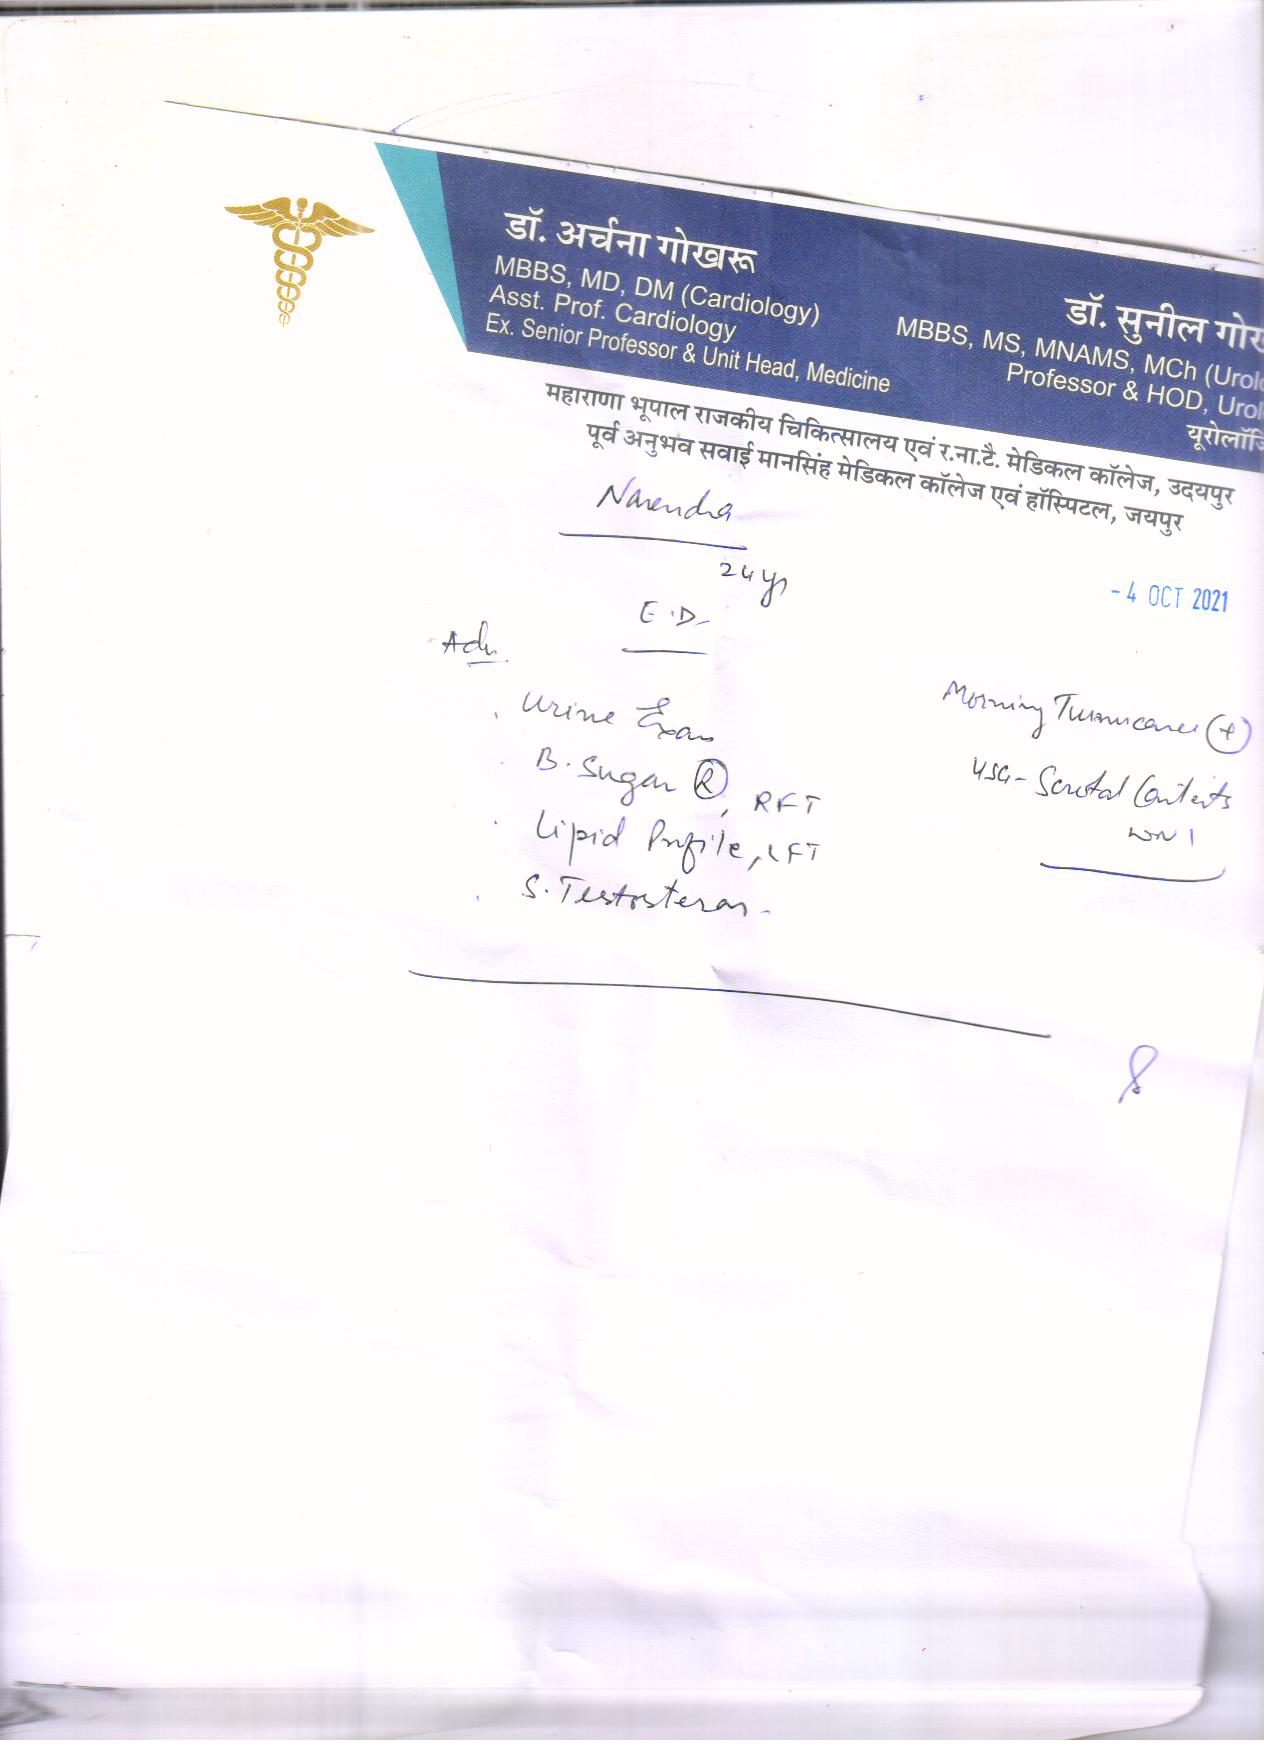 डॉ. अर्चना गोखरू
MBBS, MD, DM (Cardiology)
Asst. Prof. Cardiology
Ex. Senior Professor & Unit Head, Medicine
डॉ. सुनील गोख
MBBS, MS, MNAMS, MCh (Urolo
Professor & HOD, Urol
यूरोलॉजि
महाराणा भूपाल राजकीय चिकित्सालय एवं र.ना.टै. मेडिकल कॉलेज, उदयपुर
पूर्व अनुभव सवाई मानसिंह मेडिकल कॉलेज एवं हॉस्पिटल, जयपुर
Narendra
24 yr
- 4 OCT 2021
E.D.
Adv.
Urine Exam
B. Sugar (R), RFT
Lipid Profile, LFT
S. Testosteron
Morning Tumescence (+)
USG - Scrotal Contents
WNL